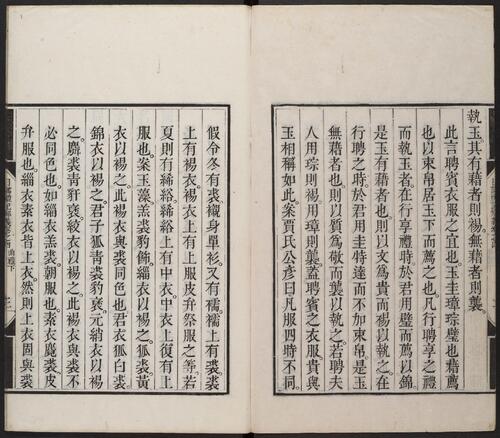 執玉其有藉者則裼無藉者則襲
此言聘賓衣服之宜也玉圭璋琮璧也藉薦
也以束帛居玉下而薦之也凡行聘享之禮
而執玉者在行享禮時於君用璧而薦以錦
是玉有藉者也則以文為貴而裼以執之在
行聘之時於君用圭特達而不加束帛是玉
無藉者也則以質為敬而襲以執之若聘夫
人用琮則裼用璋則襲蓋聘賓之衣服貴與
玉相稱如此案賈氏公彥曰凡服四時不同
假令冬有裘襯身單衫又有襦襦上有裘裘
上有裼衣裼衣上有上服皮弁祭服之等若
夏則有絺綌絺綌上有中衣中衣上復有上
服也案玉藻羔裘豹飾緇衣以裼之狐裘黃
衣以裼之此裼衣與裘同色也君衣狐白裘
錦衣以裼之君子狐青裘豹褎元綃衣以裼
之麛裘青豻褎絞衣以裼之此裼衣與裘不
必同色也如緇衣羔裘朝服也素衣麑裘皮
弁服也緇衣素衣皆上衣然則上衣固與裘